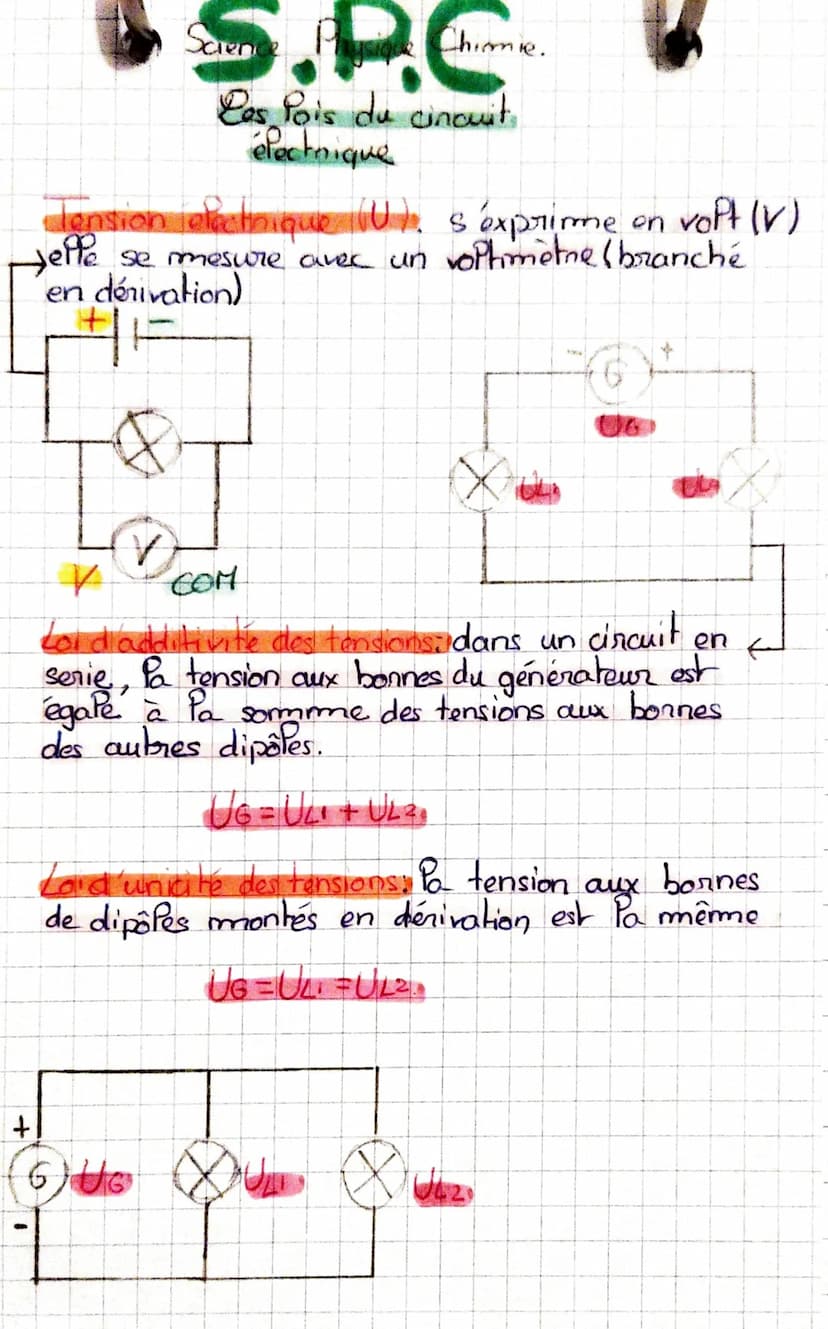 S.P.C
Science Physique Chimie.
Les lois du circuit
électrique
Tension électrique (U): s'exprime en volt (V)
elle se mesure avec un voltmètre (branché
en dérivation)
+ -
- G +
UG
UL1
V
V COM
Loi d'additivité des tensions: dans un circuit en
serie, la tension aux bornes du générateur est
égale à la somme des tensions aux bornes
des autres dipôles.
UG = UL1 + UL2.
Loi d'unicité des tensions: la tension aux bornes
de dipôles montés en dérivation est la même
UG = UL1 = UL2.
+
G UG UL1 UL2
-